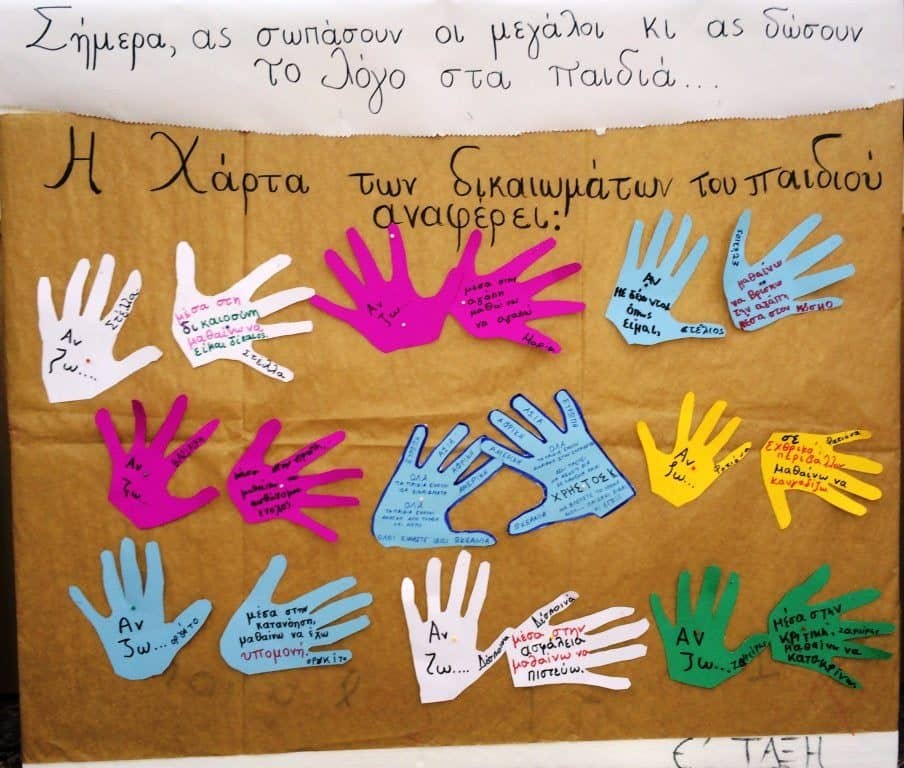 Σήμερα, ας σωπάσουν οι μεγάλοι κι ας δώσουν
το λόγο στα παιδιά...
Η Χάρτα των δικαιωμάτων του παιδιού
αναφέρει:
Αν
ζω....
Στέλλα
μέσα στη
δικαιοσύνη
μαθαίνω να
είμαι δίκαιος.
Στέλλα
Αν
ζω
μέσα στην
αγάπη
μαθαίνω
να αγαπώ
Μαρία
Αν
ΜΕ δέχονται
όπως
είμαι,
στέλιος
μαθαίνω
να βρίσκω
την αγάπη
μέσα στον κόσμο
Αν
ζω
μαθαίνω
ένοχος
ΕΥΡΩΠΗ
ΑΣΙΑ
ΑΦΡΙΚΗ
ΑΜΕΡΙΚΗ
ΟΛΑ
ΤΑ ΠΑΙΔΙΑ ΕΧΟΥΝ
ΟΛΑ
ΤΑ ΠΑΙΔΙΑ ΕΧΟΥΝ
ΟΛΟΙ ΕΙΜΑΣΤΕ ΙΔΙΟΙ ΩΚΕΑΝΙΑ
ΑΜΕΡΙΚΗ
ΑΦΡΙΚΗ
ΑΣΙΑ
ΕΥΡΩΠΗ
ΟΛΑ
ΧΡΗΣΤΟΣ Κ
ΩΚΕΑΝΙΑ
Αν
ζω...
σε
εχθρικό
περιβάλλον
μαθαίνω να
καυγαδίζω
Αν
ζω...
μέσα στην
κατανόηση,
μαθαίνω να έχω
υπομονή.
Αν
ζω....
Δέσποινα
Δέσποινα
μέσα στην
ασφάλεια
μαθαίνω να
πιστεύω.
ΑΝ
ζω...
Μέσα στην
κριτική,
μαθαίνω να
κατακρίνω
Ε΄ ΤΑΞΗ